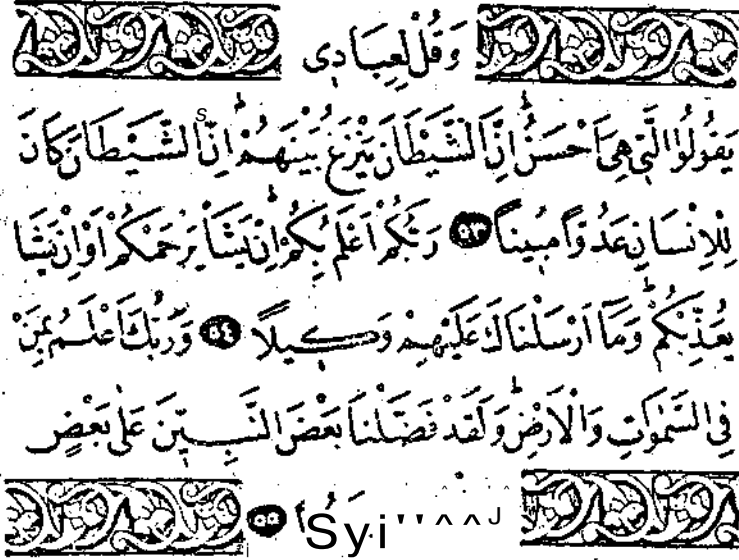 وَقُلْ لِعِبَادِي
يَقُولُوا الَّتِي هِيَ اَحْسَنُ اِنَّ الشَّيْطَانَ يَنْزَغُ بَيْنَهُمْ اِنَّ الشَّيْطَانَ كَانَ
لِلْاِنْسَانِ عَدُوًّا مُبِينًا ٥٣ رَبُّكُمْ اَعْلَمُ بِكُمْ اِنْ يَشَأْ يَرْحَمْكُمْ اَوْ اِنْ يَشَأْ
يُعَذِّبْكُمْ وَمَا اَرْسَلْنَاكَ عَلَيْهِمْ وَكِيلًا ٥٤ وَرَبُّكَ اَعْلَمُ بِمَنْ
فِي السَّمٰوَاتِ وَالْاَرْضِ وَلَقَدْ فَضَّلْنَا بَعْضَ النَّبِيّنَ عَلٰى بَعْضٍ
Syi''^^J ٥٥